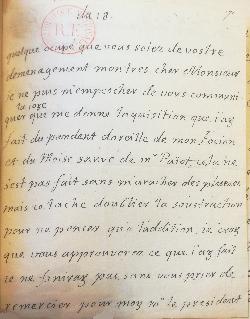 du 18.
quelque ocupé que vous soiez de vostre
demenagement mon tres cher Monsieur
ie ne puis m'empescher de vous communi
la ioye
quer que me donne laquisition que i'ay
fait du pendent doreille de mon
et du Moise sauvé de mr cela ne
s'est pas fait sans m'aracher des
mais ie tache doublier la soustraction
pour ne penser qu'a l'addition, ie croy
que vous approuverez ce que i'ay fait
ie ne finiray pas sans vous prier de
remercier pour moy mr le president